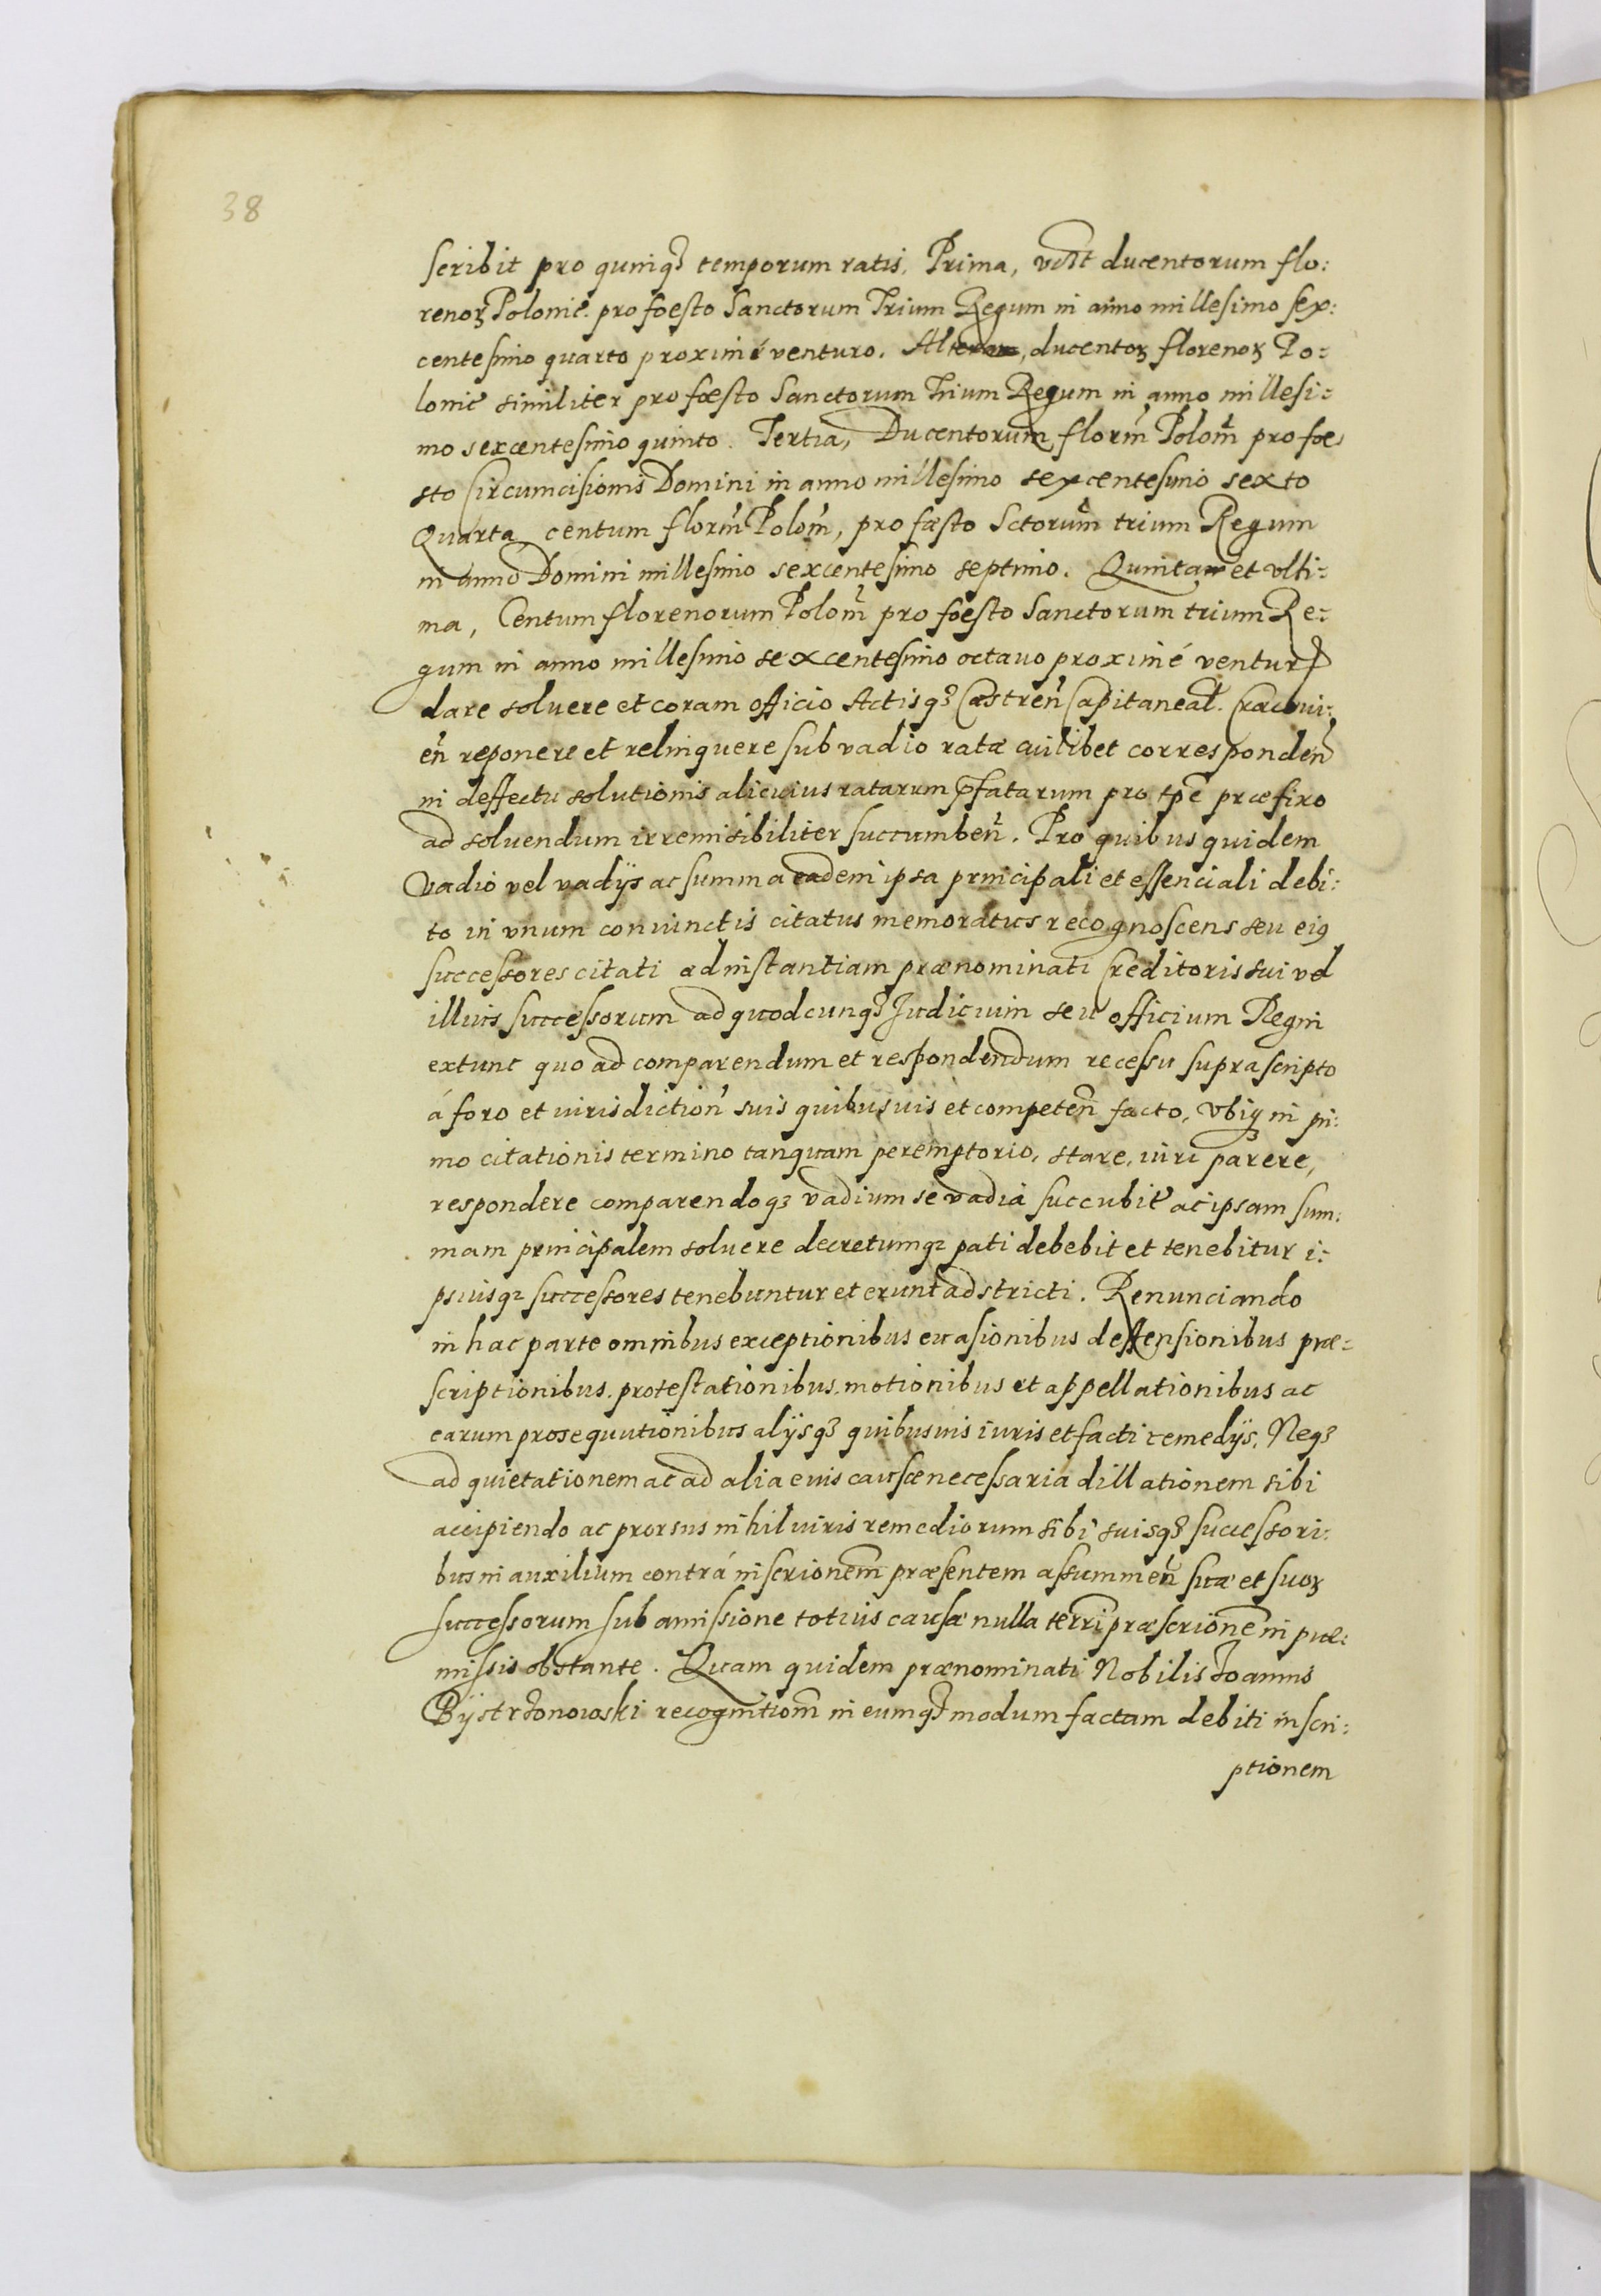 38
scribit pro quinqꝫ temporum ratis, Prima, vdlt ducentorum flo:
renoꝝ Polonic. pro foesto Sanctorum Trium Regum in anno millesimo sex:
centesimo quarto proximé venturo. Altera, ducentoꝝ florenoꝝ Po:
lonic similiter pro foesto Sanctorum Trium Regum in anno millesi:
mo sexcentesimo quinto. Tertia, Ducentorum florm̃ Polom̃ pro foe
sto Circumcisionis Domini in anno millesimo sexcentesimo sexto
Quarta centum florm̃ Polom̃, pro foesto Sctorum trium Regum
in anno Domini millesimo sexcentesimo septimo. Quinta et vlti:
ma, Centum florenorum Polom̃ pro foesto Sanctorum trium Re:
gum in anno millesimo sexcentesimo octauo proximé venturo
dare soluere et coram officio Actisqꝫ Castren̄ Capitaneal. Cracoui:
en̄ reponere et relinquere sub vadio ratæ cuilibet corresponden̄
in deffectu solutionis alicuius ratarum p̄fatarum pro tpe præfixo
ad soluendum irremisibiliter succumben̄. Pro quibus quidem
vadio vel vadijs ac summa eadem ipsa principali et essenciali debi:
to in vnum coniunctis citatus memoratus recognoscens seu eiꝯ
successores citati ad instantiam prænominati Creditoris sui vel
illius successorum ad quodcunqꝫ Judicium seu officium Regni
extunc quo ad comparendum et respondendum recessu suprascripto
á foro et iurisdiction̄ suis quibusuis et competen̄ facto, vbiqꝫ in pri:
mo citationis termino tanquam peremptorio, stare, iuri parere,
respondere comparendoqꝫ vadium sé vadia succubite ac ipsam sum:
mam principalem soluere decretumqꝫ pati debebit et tenebitur i:
psiusqꝫ successores tenebuntur et erunt adstricti. Renunciando
in hac parte omnibus exceptionibus euasionibus deffensionibus præ:
scriptionibus. protestationibus. motionibus et appellationibus ac
earum prosequutionibus alijsqꝫ quibusuis iuris et facti remedijs, Neqꝫ
ad quietationem ac ad alia euis causæ necessaria dillationem sibi
accipiendo ac prorsus nihil iuris remediorum sibi suisqꝫ successori:
bus in auxilium contrá inscrionem̄ præsentem assummen̄ suæ et suoꝝ
successorum sub amissione totius causæ nulla terri præscrione in præ:
missis obstante. Quam quidem prænominati Nobilis Joannis
Bystrzonowski recognitiom̄ in eumqꝫ modum factam debiti inscri:
ptionem